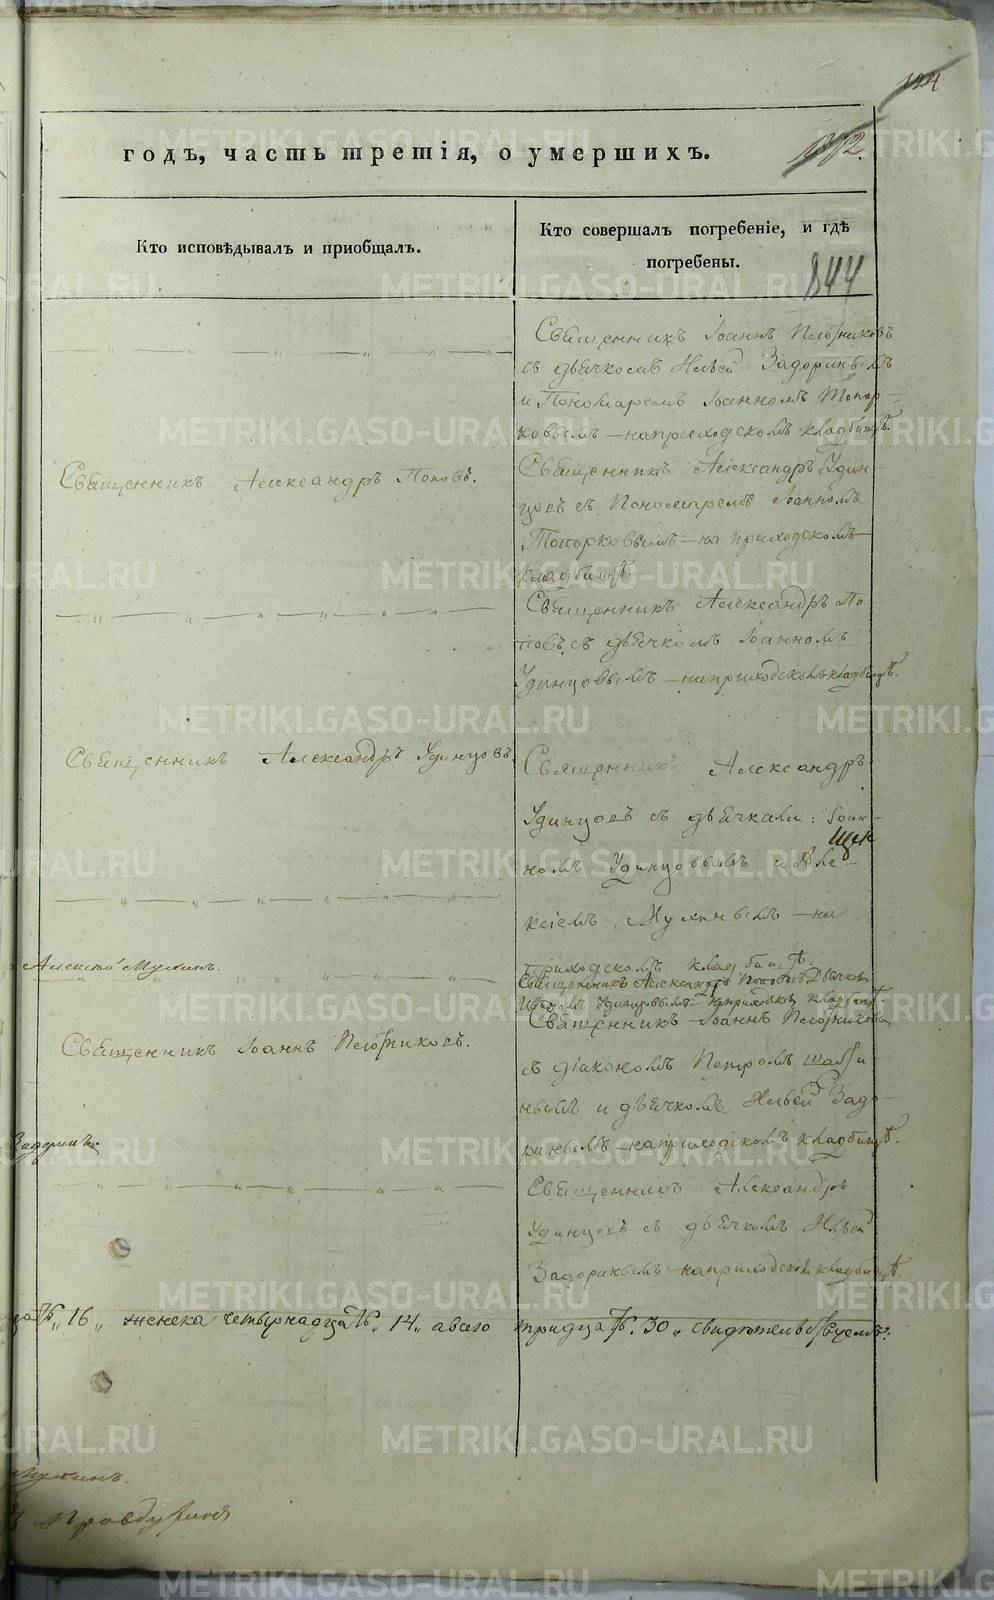 124
172.
годъ, часть третія, о умершихъ.
Кто исповѣдывалъ и приобщалъ.
Кто совершалъ погребеніе, и гдѣ
погребены.
844
Священникъ Іоаннъ Плотниковъ
съ дьячкомъ Ильей Задоринымъ
и Пономаремъ Іоанномъ Топор-
ковымъ – на приходскомъ кладбищѣ.
Священникъ Александръ Поповъ.
Священникъ Александръ Удин-
цовъ съ Пономаремъ Іоанномъ
Топорковымъ – на приходскомъ
кладбищѣ.
Священникъ Александръ По
повъ съ дьячкомъ Іоанномъ
Удинцовымъ – на приходскомъ кладбищѣ.
Священникъ Александръ Удинцовъ.
Священникъ Александръ
Удинцовъ съ дьячками: Іоан-
номъ Удинцовымъ и Але-
ксіемъ Мухинымъ – на
приходскомъ кладбищѣ.
Алексій Мухинъ.
Священникъ Александръ Поповъ съ Дьячкомъ
Иваномъ Удинцовымъ на приходскомъ кладбищѣ.
Священникъ Іоаннъ Плотниковъ.
Священникъ Іоаннъ Плотниковъ
съ діакономъ Петромъ
и дьячкомъ Ильей Задо-
ринымъ на приходскомъ кладбищѣ.
Задоринъ.
Священникъ Александръ
Удинцовъ съ дьячкомъ Ильей
Задоринымъ на приходскомъ кладбищѣ.
16 „ женска четырнадцать „ 14 „ а всего тридцать „ 30 „ свидѣтельствуемъ:
Мухинъ.